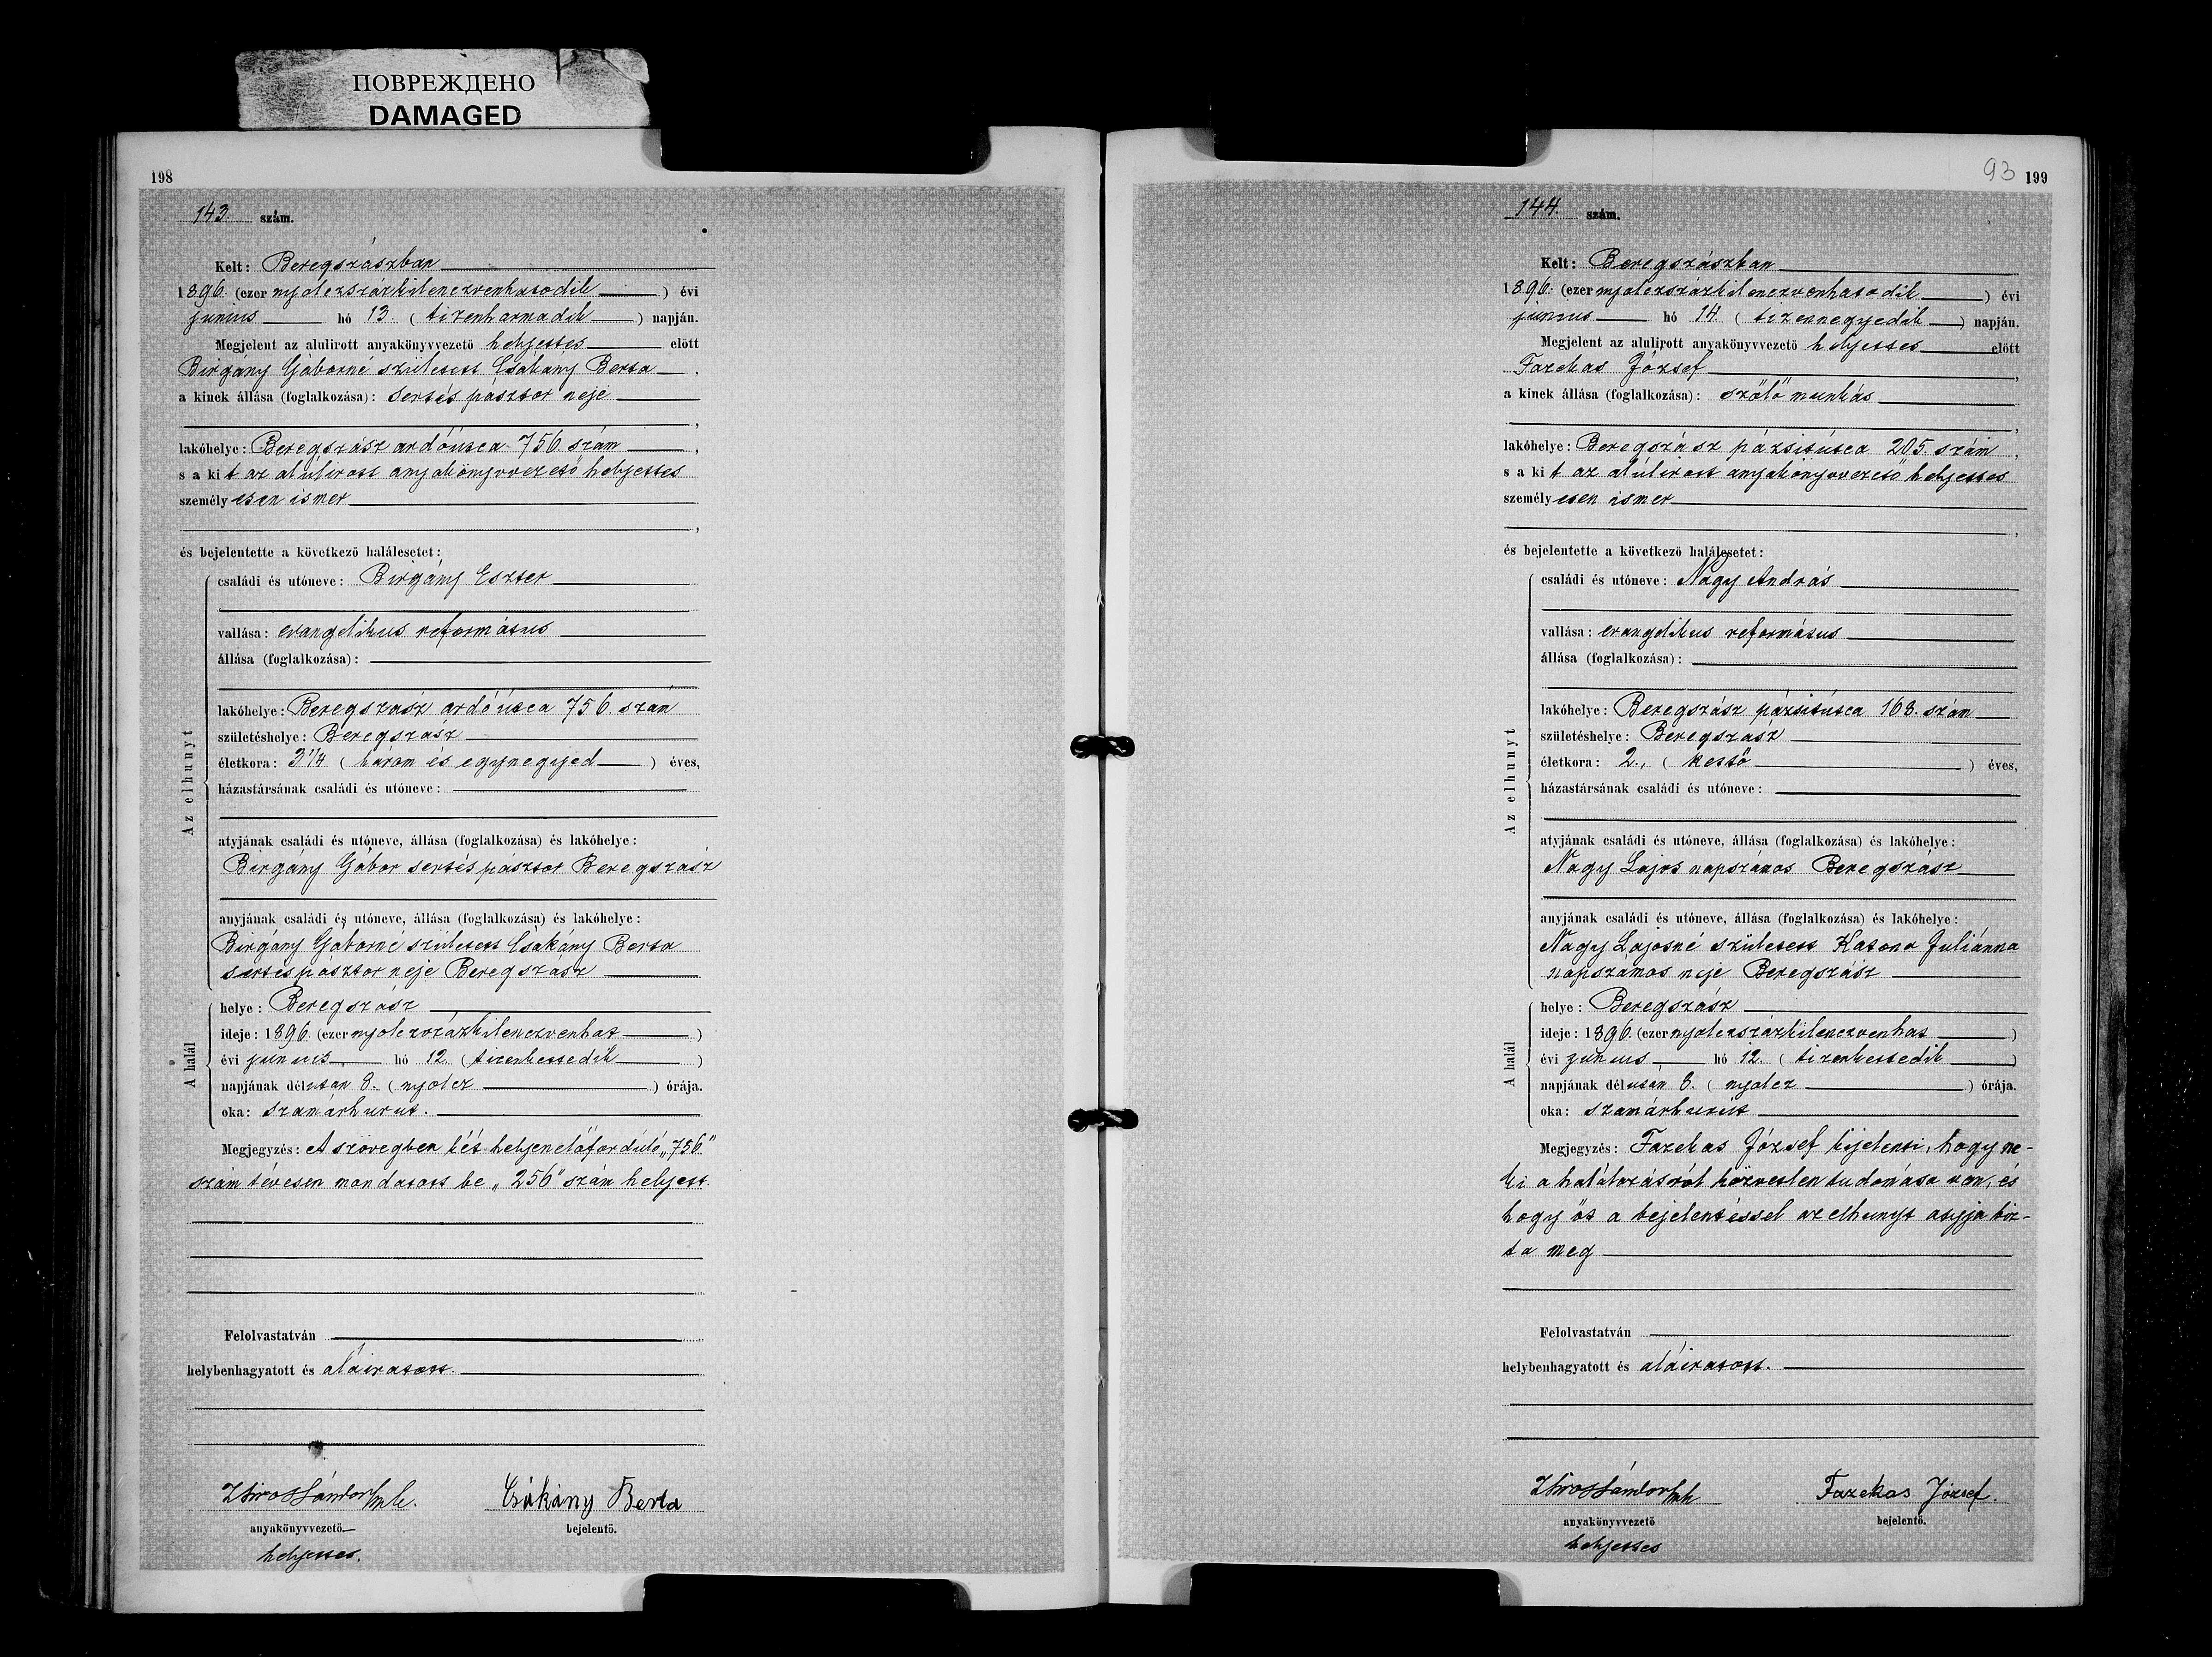 ПОВРЕЖДЕНО
DAMAGED
198
143. szám.
Kelt: Beregszászban
1896. (ezer nyolczszázkilenczvenhatodik) évi
junius hó 13. (tizenharmadik) napján.
Megjelent az alulirott anyakönyvvezető helyettes előtt
Birgány Gáborné született Csákány Berta
a kinek állása (foglalkozása): sertés pásztor neje
lakóhelye: Beregszász ardóútca 756. szám,
s a kit az alúlirott anyakönyvvezető helyettes
személyesen ismer
és bejelentette a következő halálesetet:
Az elhunyt
családi és utóneve: Birgány Eszter
vallása: evangelikus református
állása (foglalkozása):
lakóhelye: Beregszász ardóútca 756. szám
születéshelye: Beregszász
életkora: 3 1/4 (három és egynegyed) éves,
házastársának családi és utóneve:
atyjának családi és utóneve, állása (foglalkozása) és lakóhelye:
Birgány Gábor sertés pásztor Beregszász
anyjának családi és utóneve, állása (foglalkozása) és lakóhelye:
Birgány Gáborné született Csákány Berta
sertés pásztor neje Beregszász
A halál
helye: Beregszász
ideje: 1896. (ezer nyolczszázkilenczvenhat)
évi junius hó 12. (tizenkettedik)
napjának délután 8. (nyolcz) órája.
oka: szamárhurut.
Megjegyzés: A szövegben két helyen előforduló „756."
szám tévesen mondatott be „256" szám helyett.
Felolvastatván
helybenhagyatott és aláiratott.
Csákány Berta
anyakönyvvezető
bejelentő.
helyettes.
93 199
144. szám.
Kelt: Beregszászban
1896. (ezer nyolczszázkilenczvenhatodik) évi
junius hó 14. (tizennegyedik) napján.
Megjelent az alulirott anyakönyvvezető helyettes előtt
Fazekas József,
a kinek állása (foglalkozása): szőlő munkás
lakóhelye: Beregszász pázsitútca 205. szám,
s a kit az alúlirott anyakönyvvezető helyettes
személyesen ismer
és bejelentette a következő halálesetet:
Az elhunyt
családi és utóneve: Nagy András
vallása: evangelikus református
állása (foglalkozása):
lakóhelye: Beregszász pázsitútca 168. szám
születéshelye: Beregszász
életkora: 2., (kettő) éves,
házastársának családi és utóneve:
atyjának családi és utóneve, állása (foglalkozása) és lakóhelye:
Nagy Lajos napszámos Beregszász
anyjának családi és utóneve, állása (foglalkozása) és lakóhelye:
Nagy Lajosné született Katona Juliánna
napszámos neje Beregszász
A halál
helye: Beregszász
ideje: 1896. (ezer nyolczszázkilenczvenhat)
évi junius hó 12. (tizenkettedik)
napjának délután 8. (nyolcz) órája.
oka: szamárhurút
Megjegyzés: Fazekas József kijelenti, hogy ne-
ki a halálozásról közvetlen tudomása van, és
hogy őt a bejelentéssel az elhunyt atyja bíz-
ta meg
Felolvastatván
helybenhagyatott és aláiratott.
Fazekas József.
anyakönyvvezető
bejelentő.
helyettes